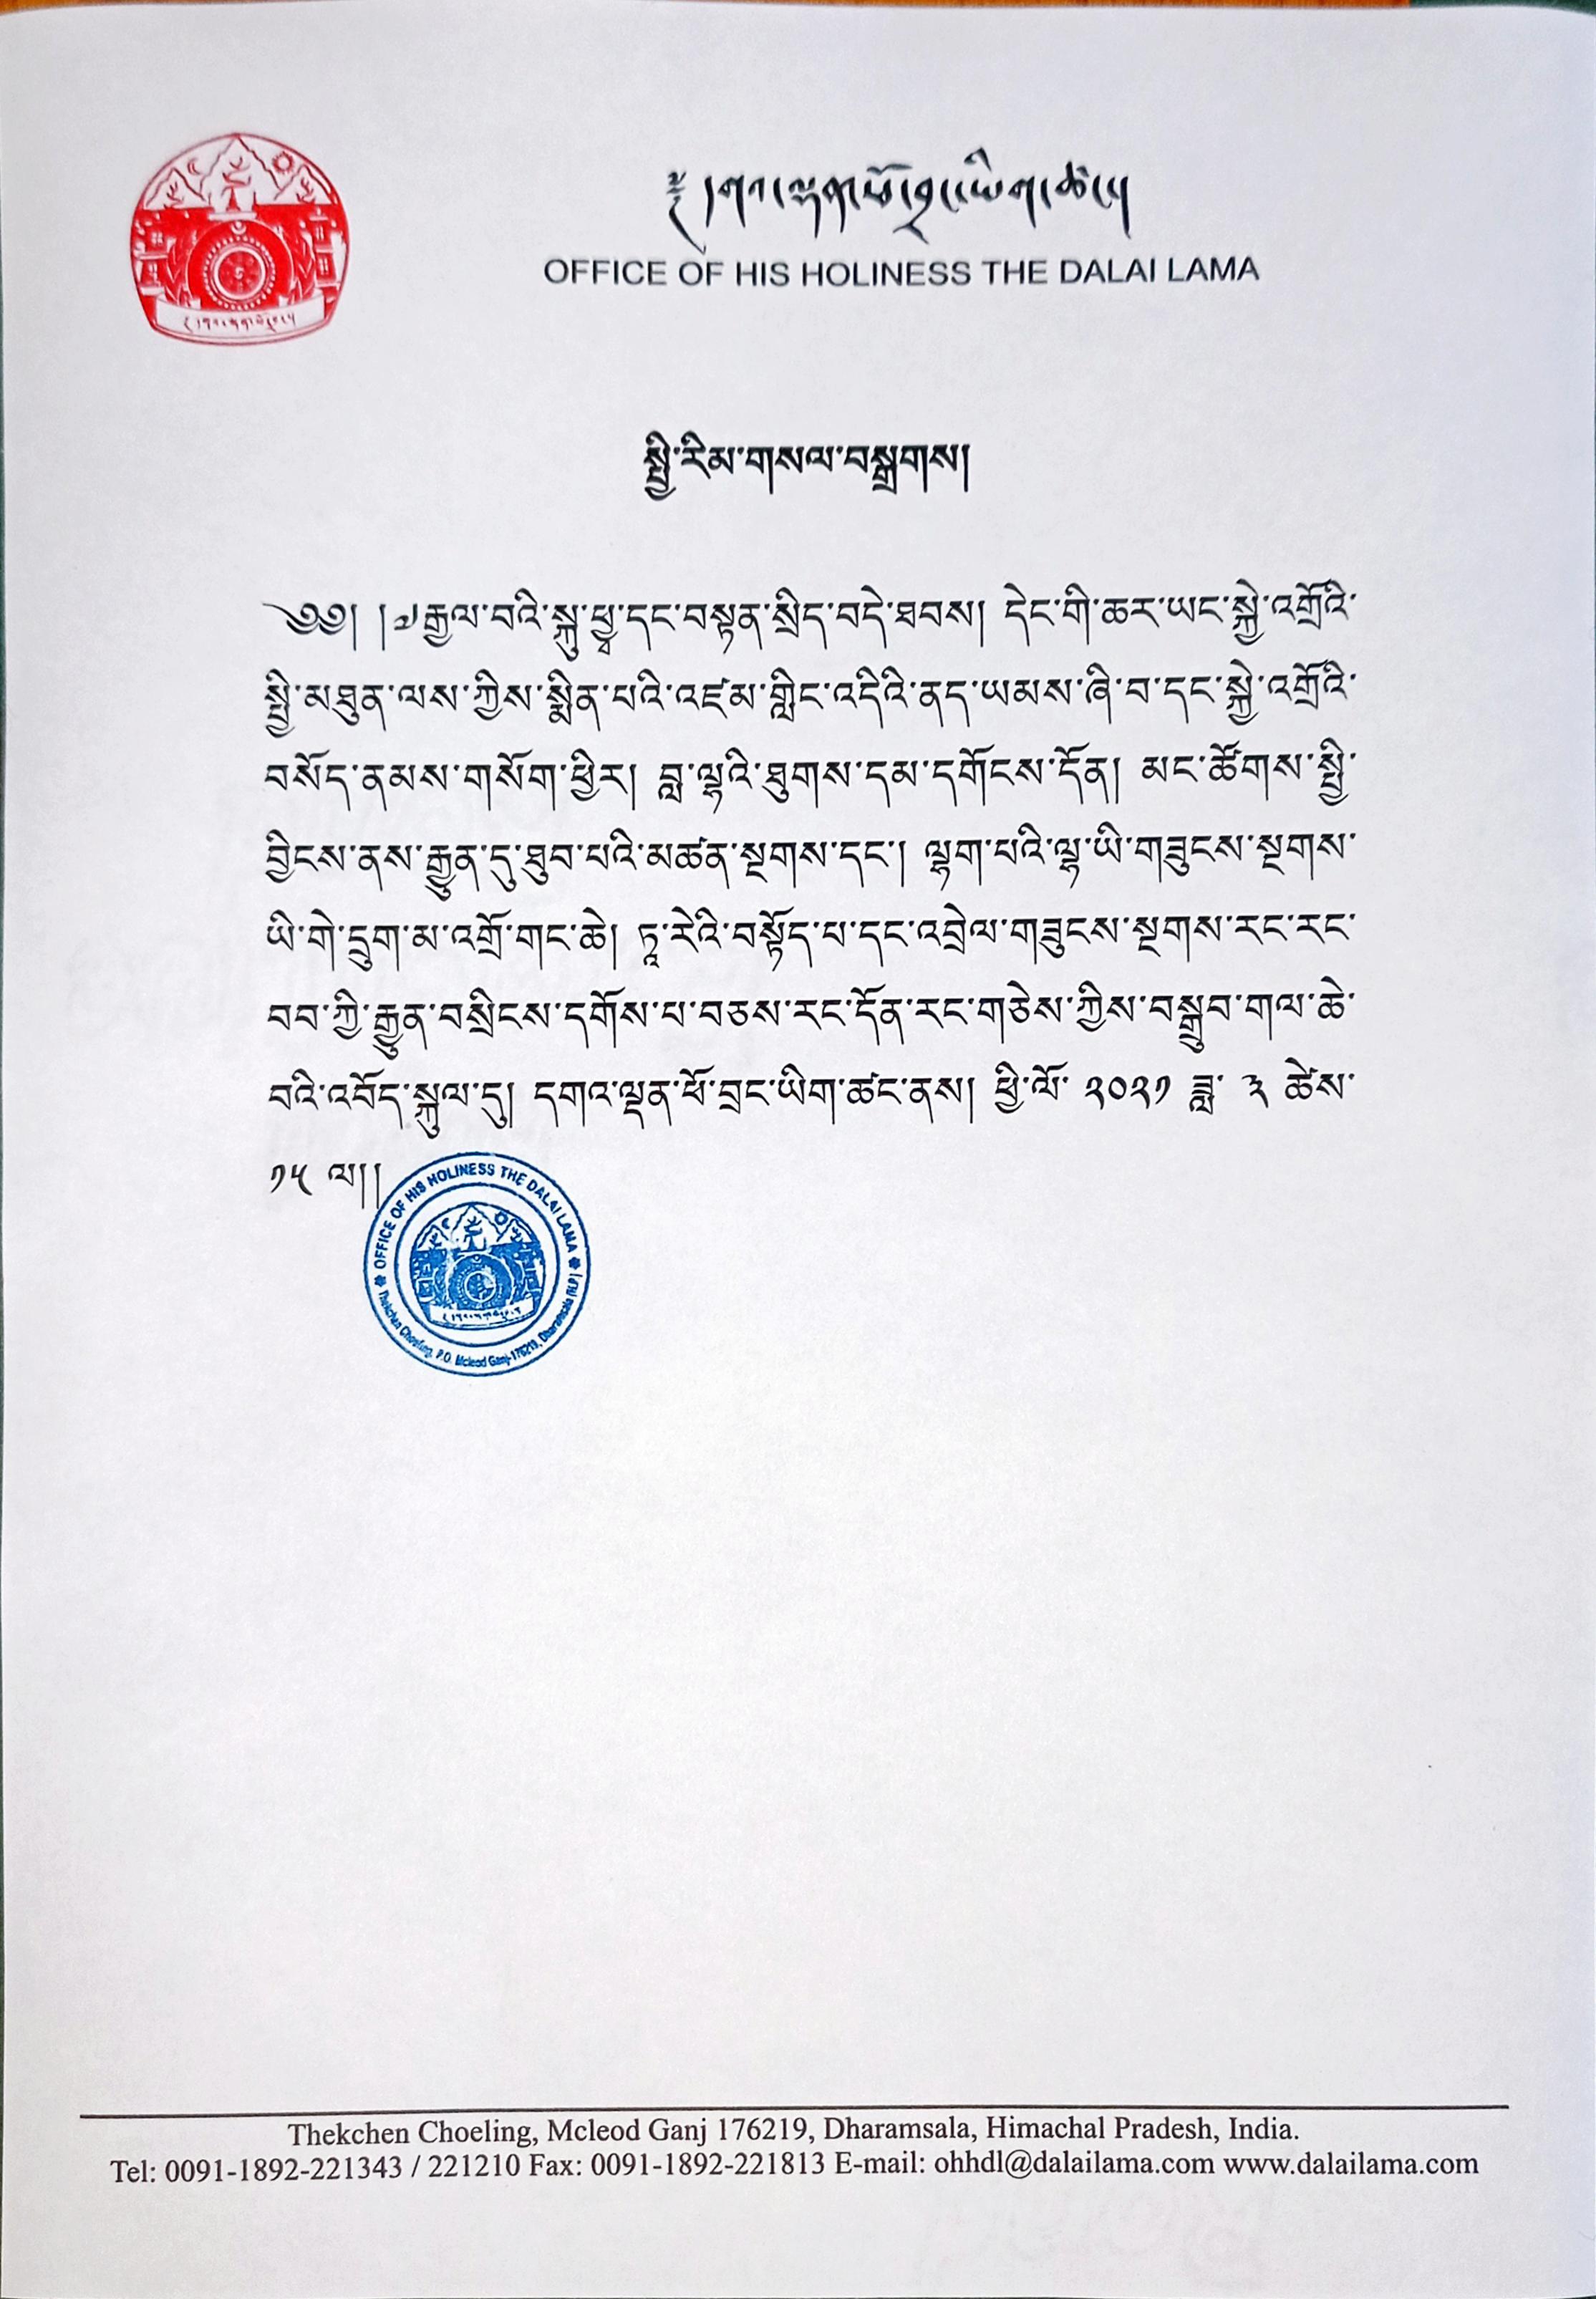 ༄ །དགའ་ལྡན་ཕོ་བྲང་ཡིག་ཚང་།
OFFICE OF HIS HOLINESS THE DALAI LAMA
སྤྱི་རིམ་གསལ་བསྒྲགས།
༄༅། །༧རྒྱལ་བའི་སྐུ་ཕྱྭ་དང་བསྟན་སྲིད་བདེ་ཐབས། དེང་གི་ཆར་ཡང་སྐྱེ་འགྲོའི་
སྤྱི་མཐུན་ལས་ཀྱིས་སྨིན་པའི་འཛམ་གླིང་འདིའི་ནད་ཡམས་ཞི་བ་དང་སྐྱེ་འགྲོའི་
བསོད་ནམས་གསོག་ཕྱིར། བླ་ལྷའི་ཐུགས་དམ་དགོངས་དོན། མང་ཚོགས་སྤྱི་
བྱིངས་ནས་རྒྱུན་དུ་ཐུབ་པའི་མཚན་སྔགས་དང་། ལྷག་པའི་ལྷ་ཡི་གཟུངས་སྔགས་
ཡི་གེ་དྲུག་མ་འགྲོ་གང་ཆེ། ཏཱ་རེའི་བསྟོད་པ་དང་འབྲེལ་གཟུངས་སྔགས་རང་རང་
བབ་ཀྱི་རྒྱུན་བསྲིངས་དགོས་པ་བཅས་རང་དོན་རང་གཅེས་ཀྱིས་བསྒྲུབ་གལ་ཆེ་
བའི་འབོད་སྐུལ་དུ། དགའ་ལྡན་ཕོ་བྲང་ཡིག་ཚང་ནས། ཕྱི་ལོ་ ༢༠༢༡ ཟླ་ ༣ ཚེས་
༡༥ ལ།།
OFFICE OF HIS HOLINESS THE DALAI LAMA
Thekchen Choeling, P.O. Mcleod Ganj-176219, Dharamsala (H.P.)
Thekchen Choeling, Mcleod Ganj 176219, Dharamsala, Himachal Pradesh, India.
Tel: 0091-1892-221343 / 221210 Fax: 0091-1892-221813 E-mail: ohhdl@dalailama.com www.dalailama.com